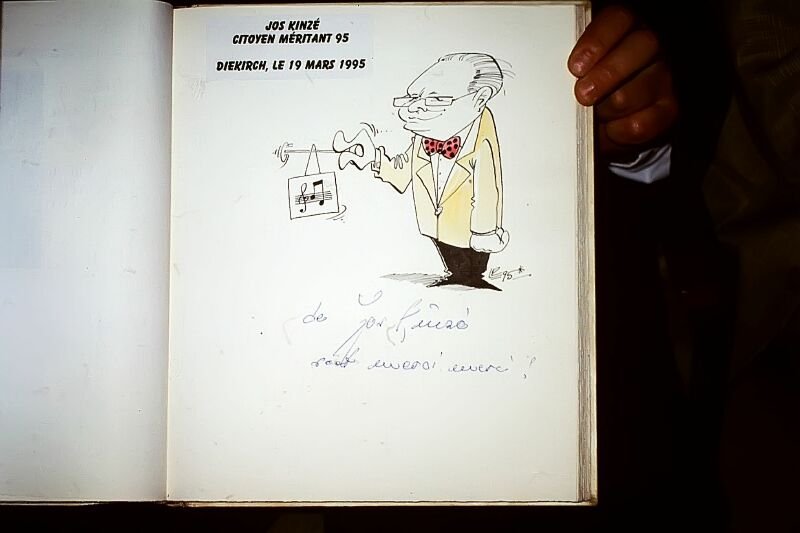 JOS KINZÉ
CITOYEN MÉRITANT 95
DIEKIRCH, LE 19 MARS 1995
95
de Jos Kinzé
seet merci merci !